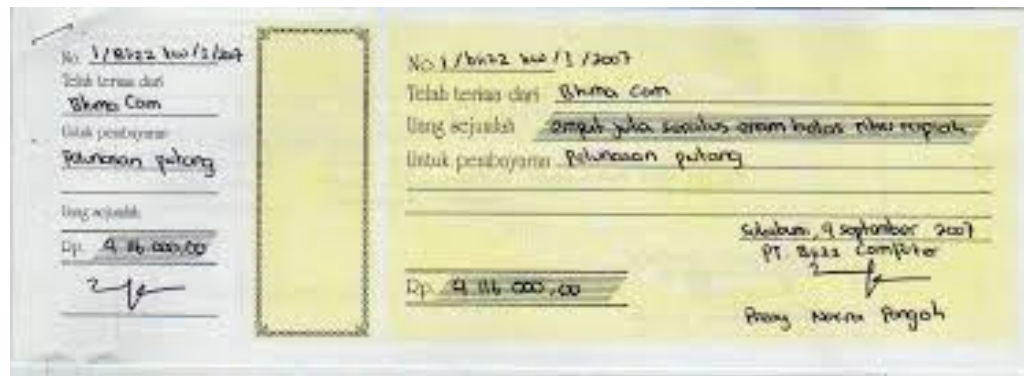 No. 1/Blizz kw/1/2007
Telah terima dari
Bhima Com
Untuk pembayaran
Pelunasan putang
Uang sejumlah
Rp. 4.116.000,00
No. 1/blizz kw/1/2007
Telah terima dari Bhima Com
Uang sejumlah empat juta seratus enam belas ribu rupiah
Untuk pembayaran Pelunasan putang
Sukabumi, 9 september 2007
PT. Blizz Computer
Rp. 4.116.000,00